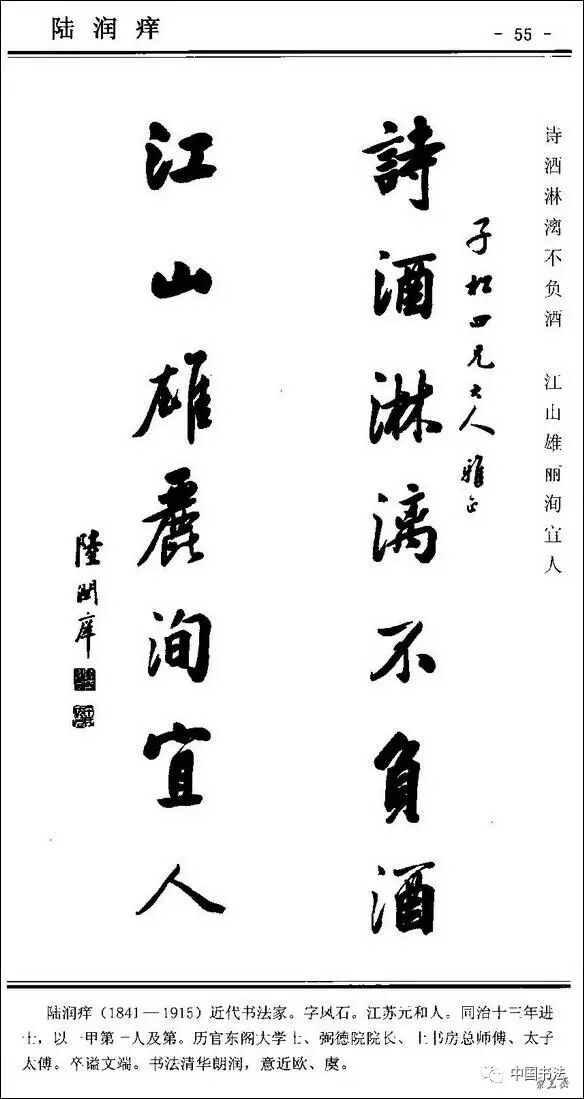 陆润痒
- 55 -
诗酒淋漓不负酒 江山雄丽洵宜人
子松四兄大人雅正
詩酒淋漓不負酒
江山雄麗洵宜人
陸潤庠
陆润痒（1841—1915）近代书法家。字凤石。江苏元和人。同治十三年进
士，以一甲第一人及第。历官东阁大学士、弼德院院长、上书房总师傅、太子
太傅。卒谥文端。书法清华朗润，意近欧、虞。
中国书法